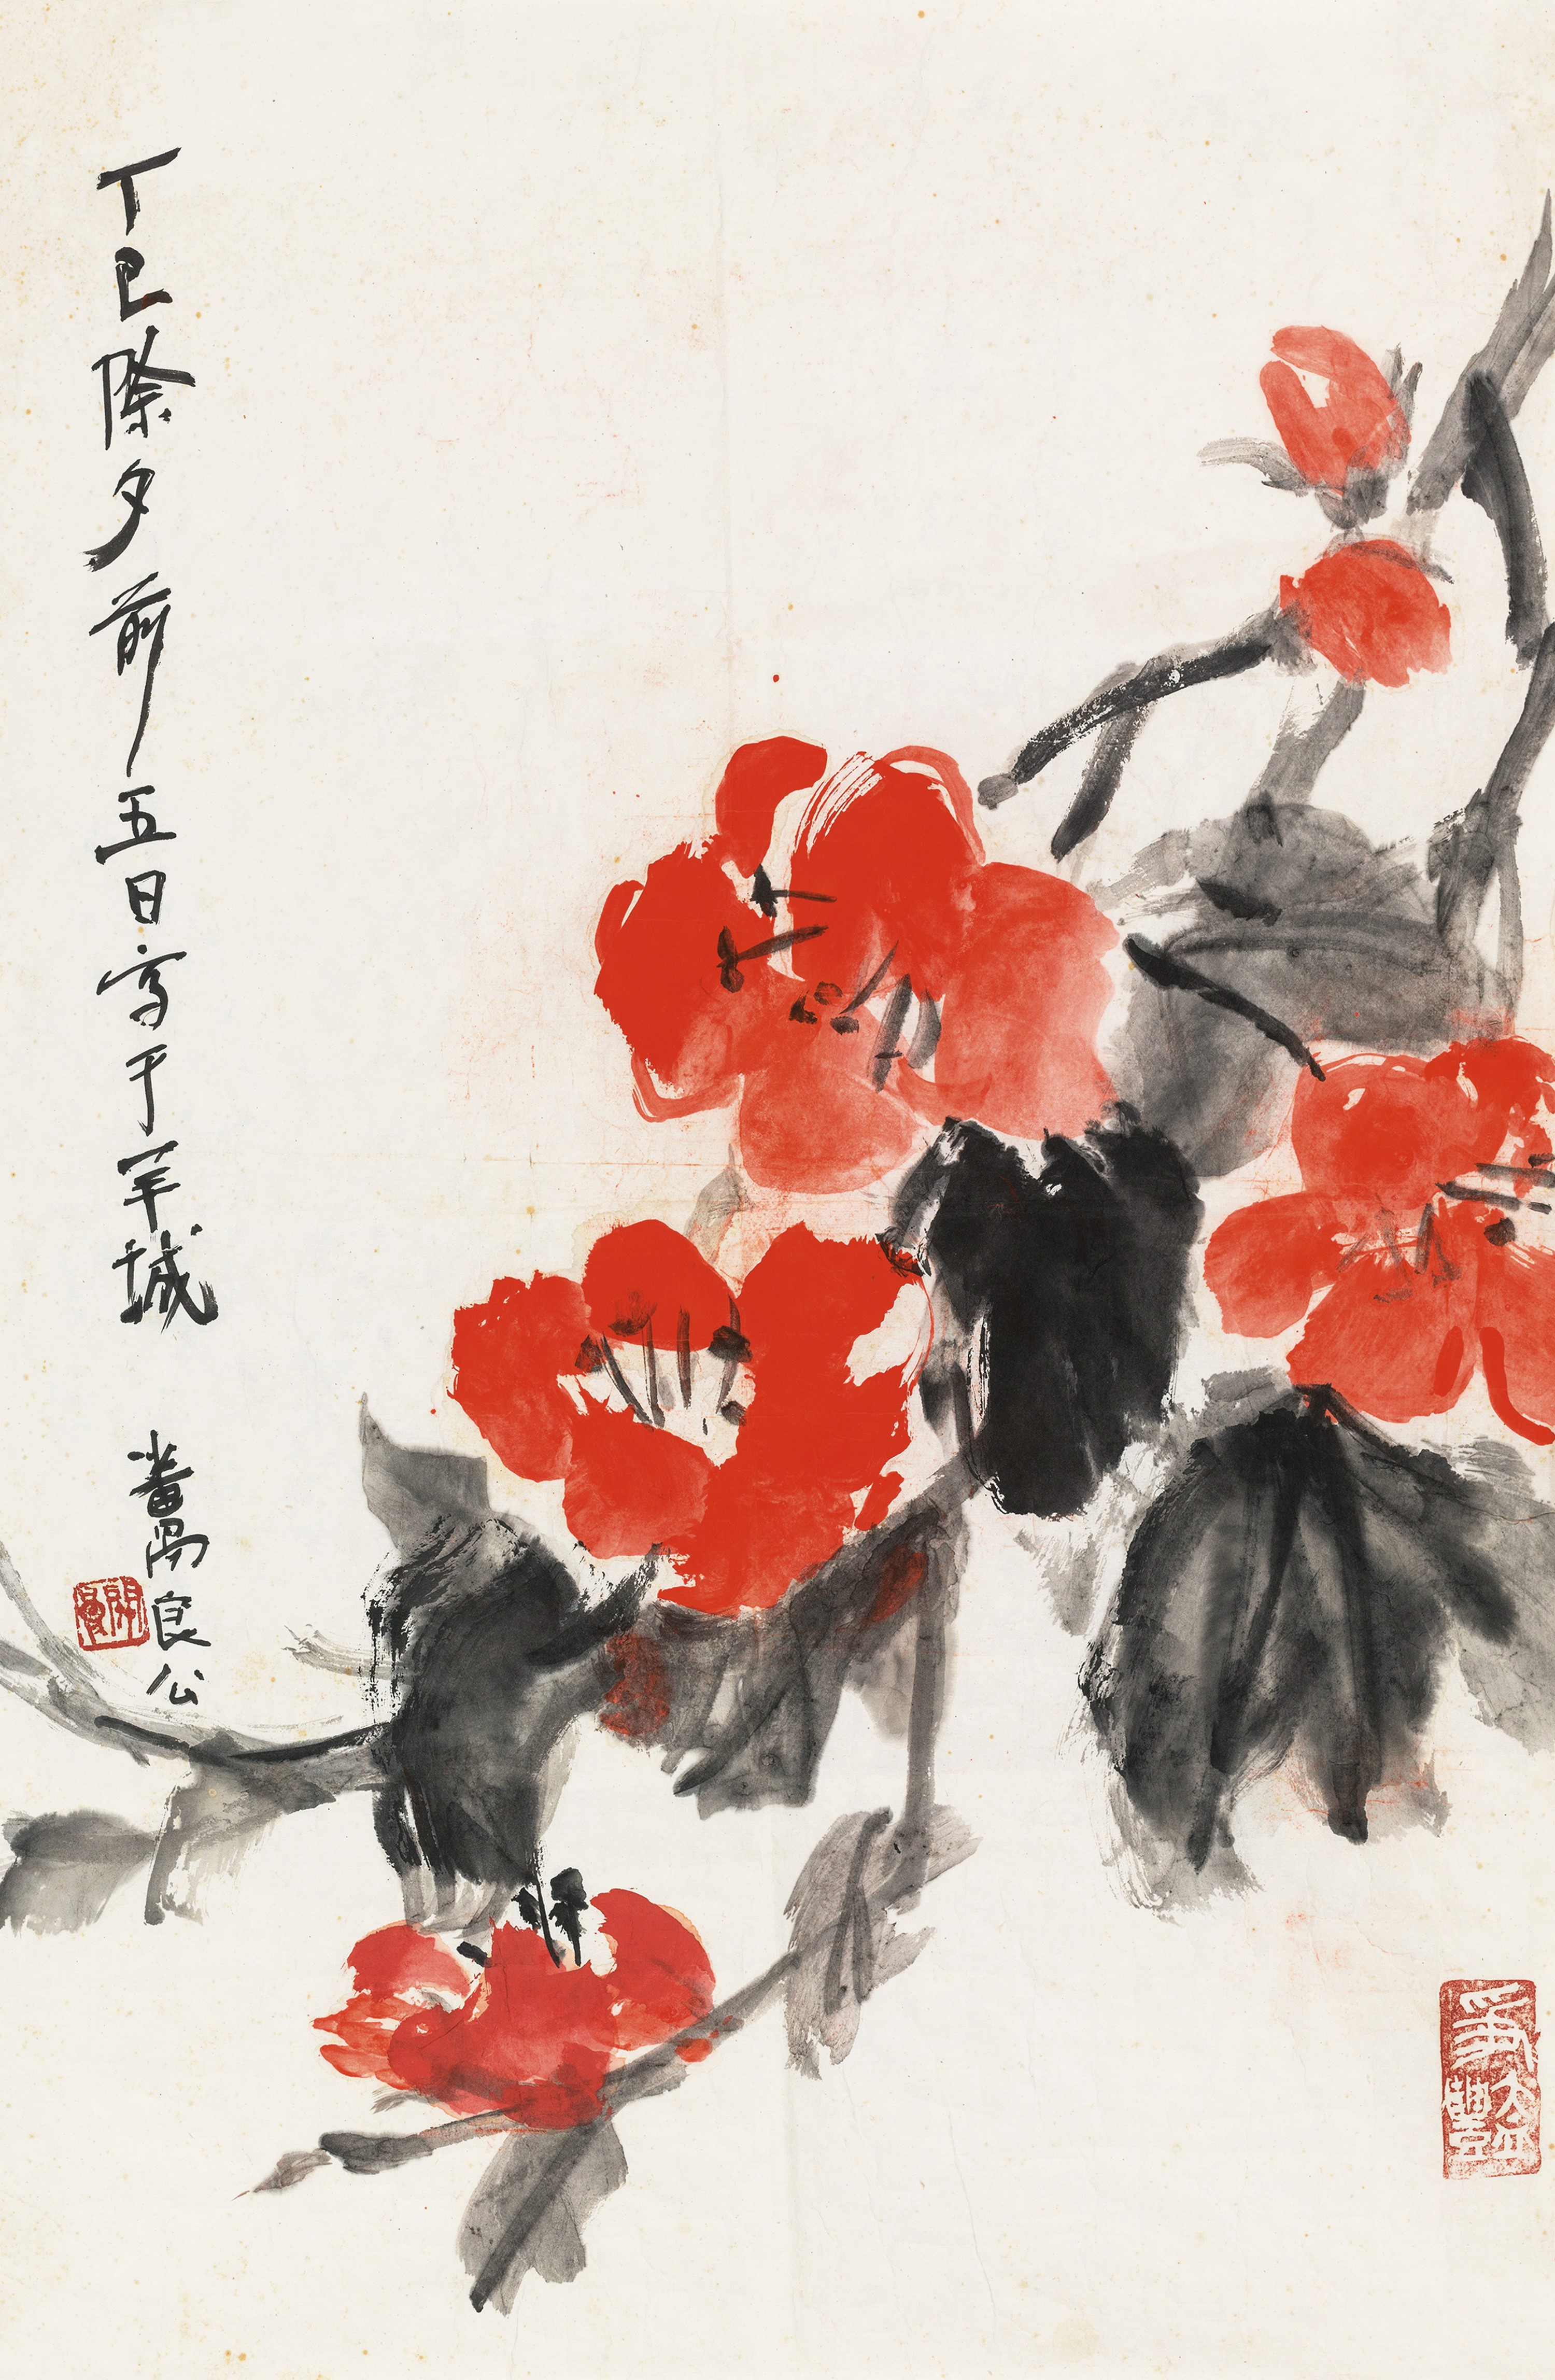 丁巳除夕前五日寫于羊城
番禺良公
關良